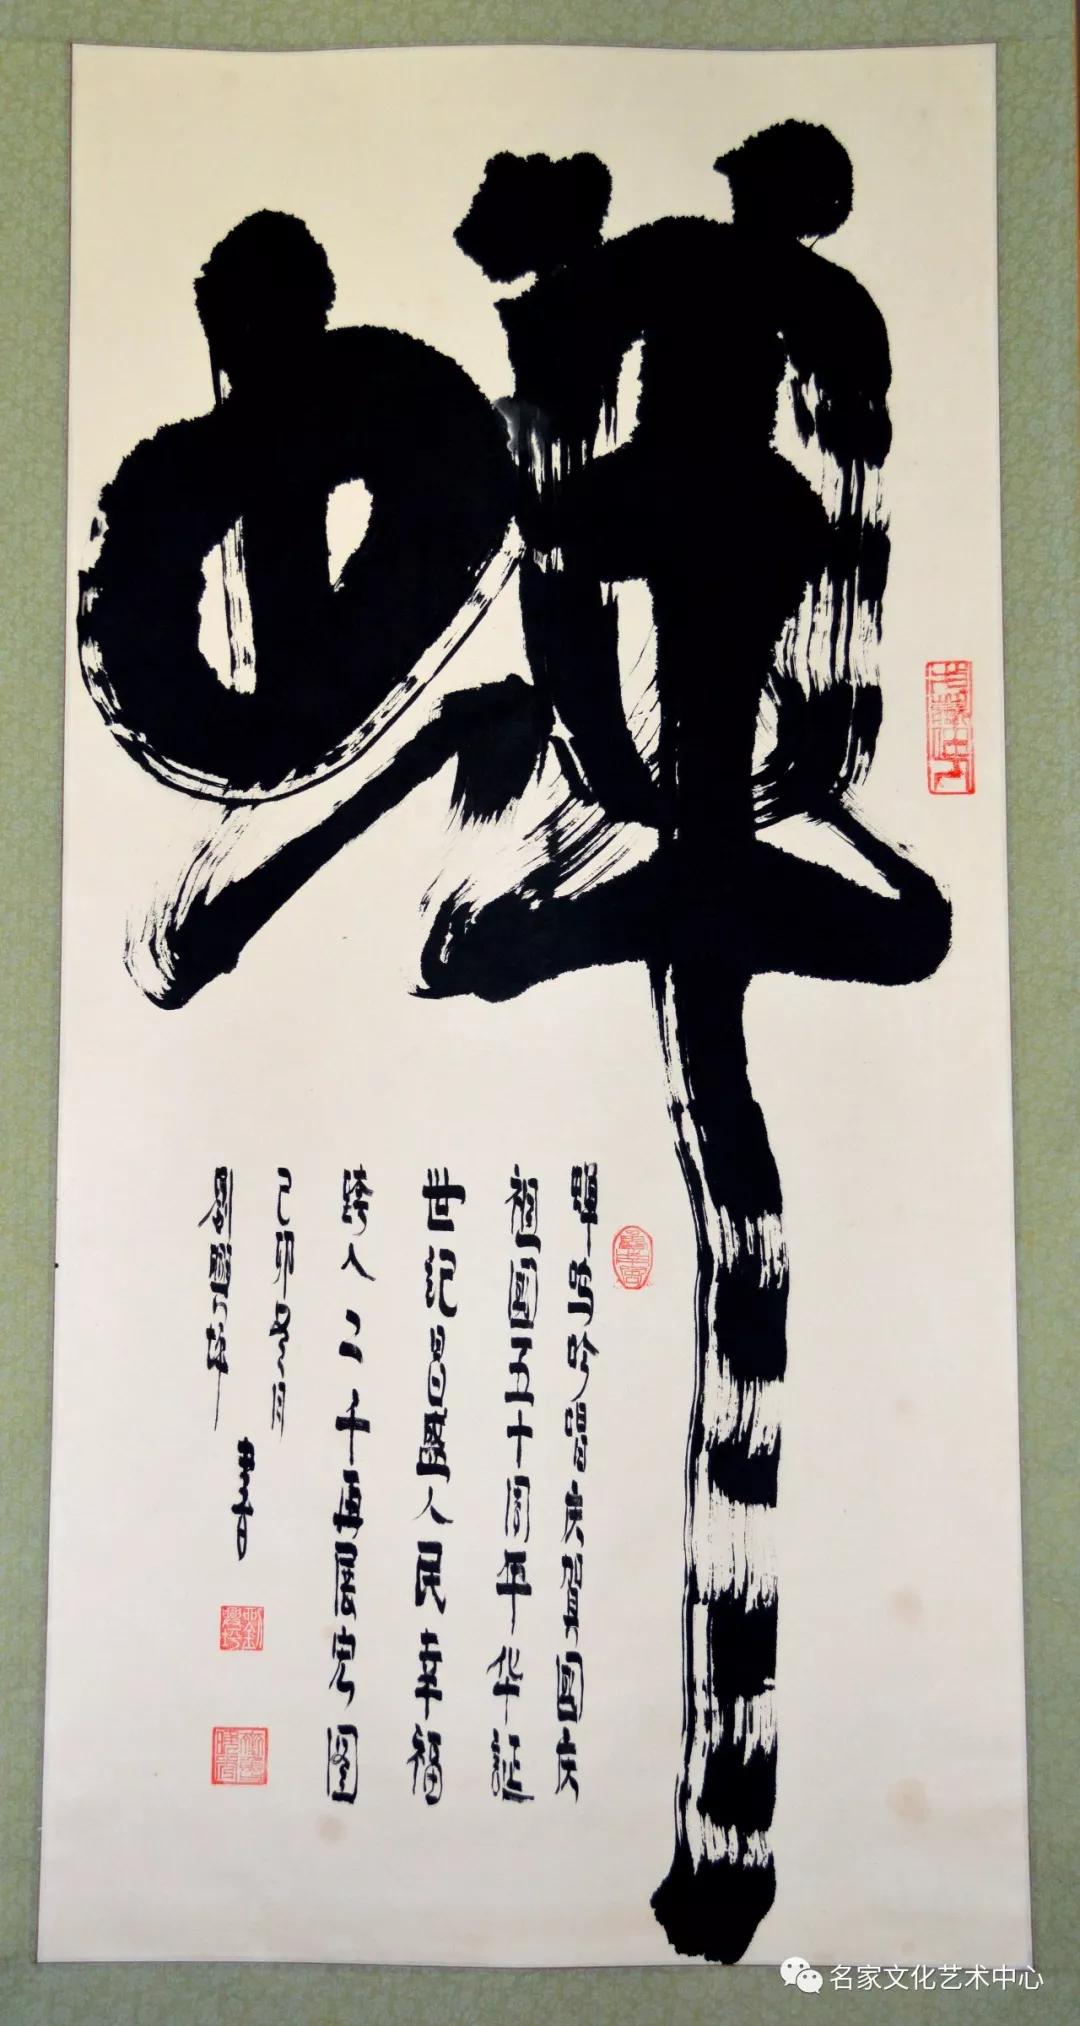 蝉
蝉鸣吟唱庆贺国庆
祖国五十周年华诞
世纪昌盛人民幸福
跨入二千再展宏图
己卯月
書
名家文化艺术中心